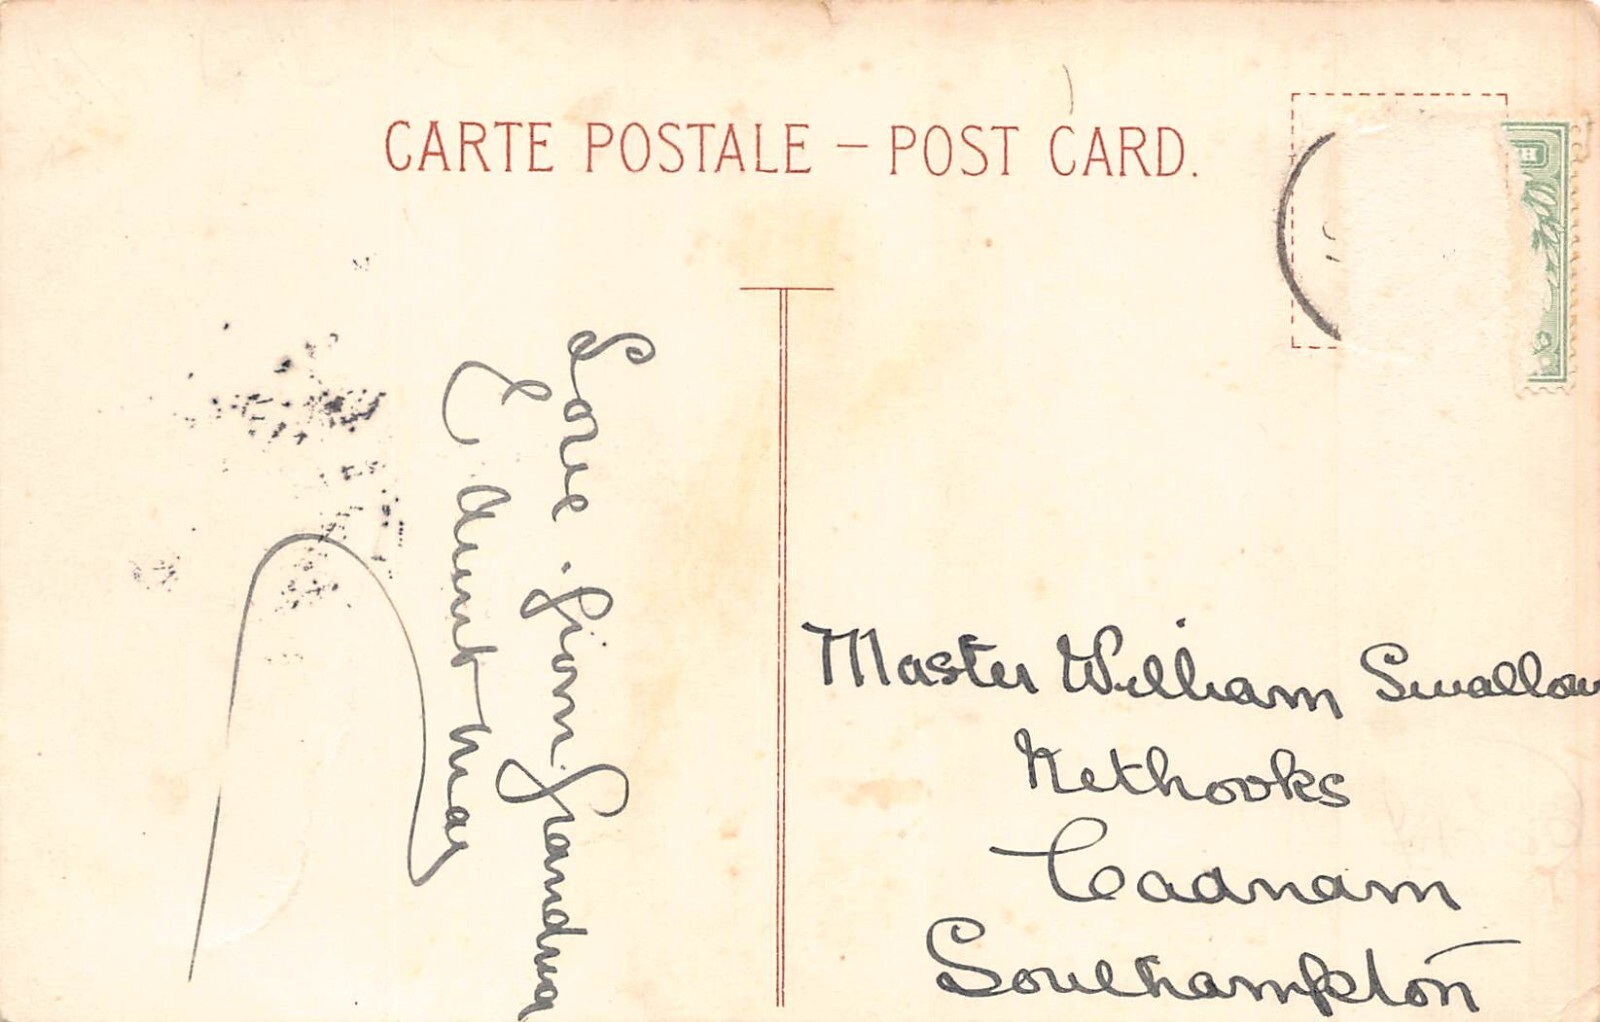 CARTE POSTALE – POST CARD.
Love from Grandma
& Aunt May
Master William Swallow
Nethooks
Cadnam
Southampton